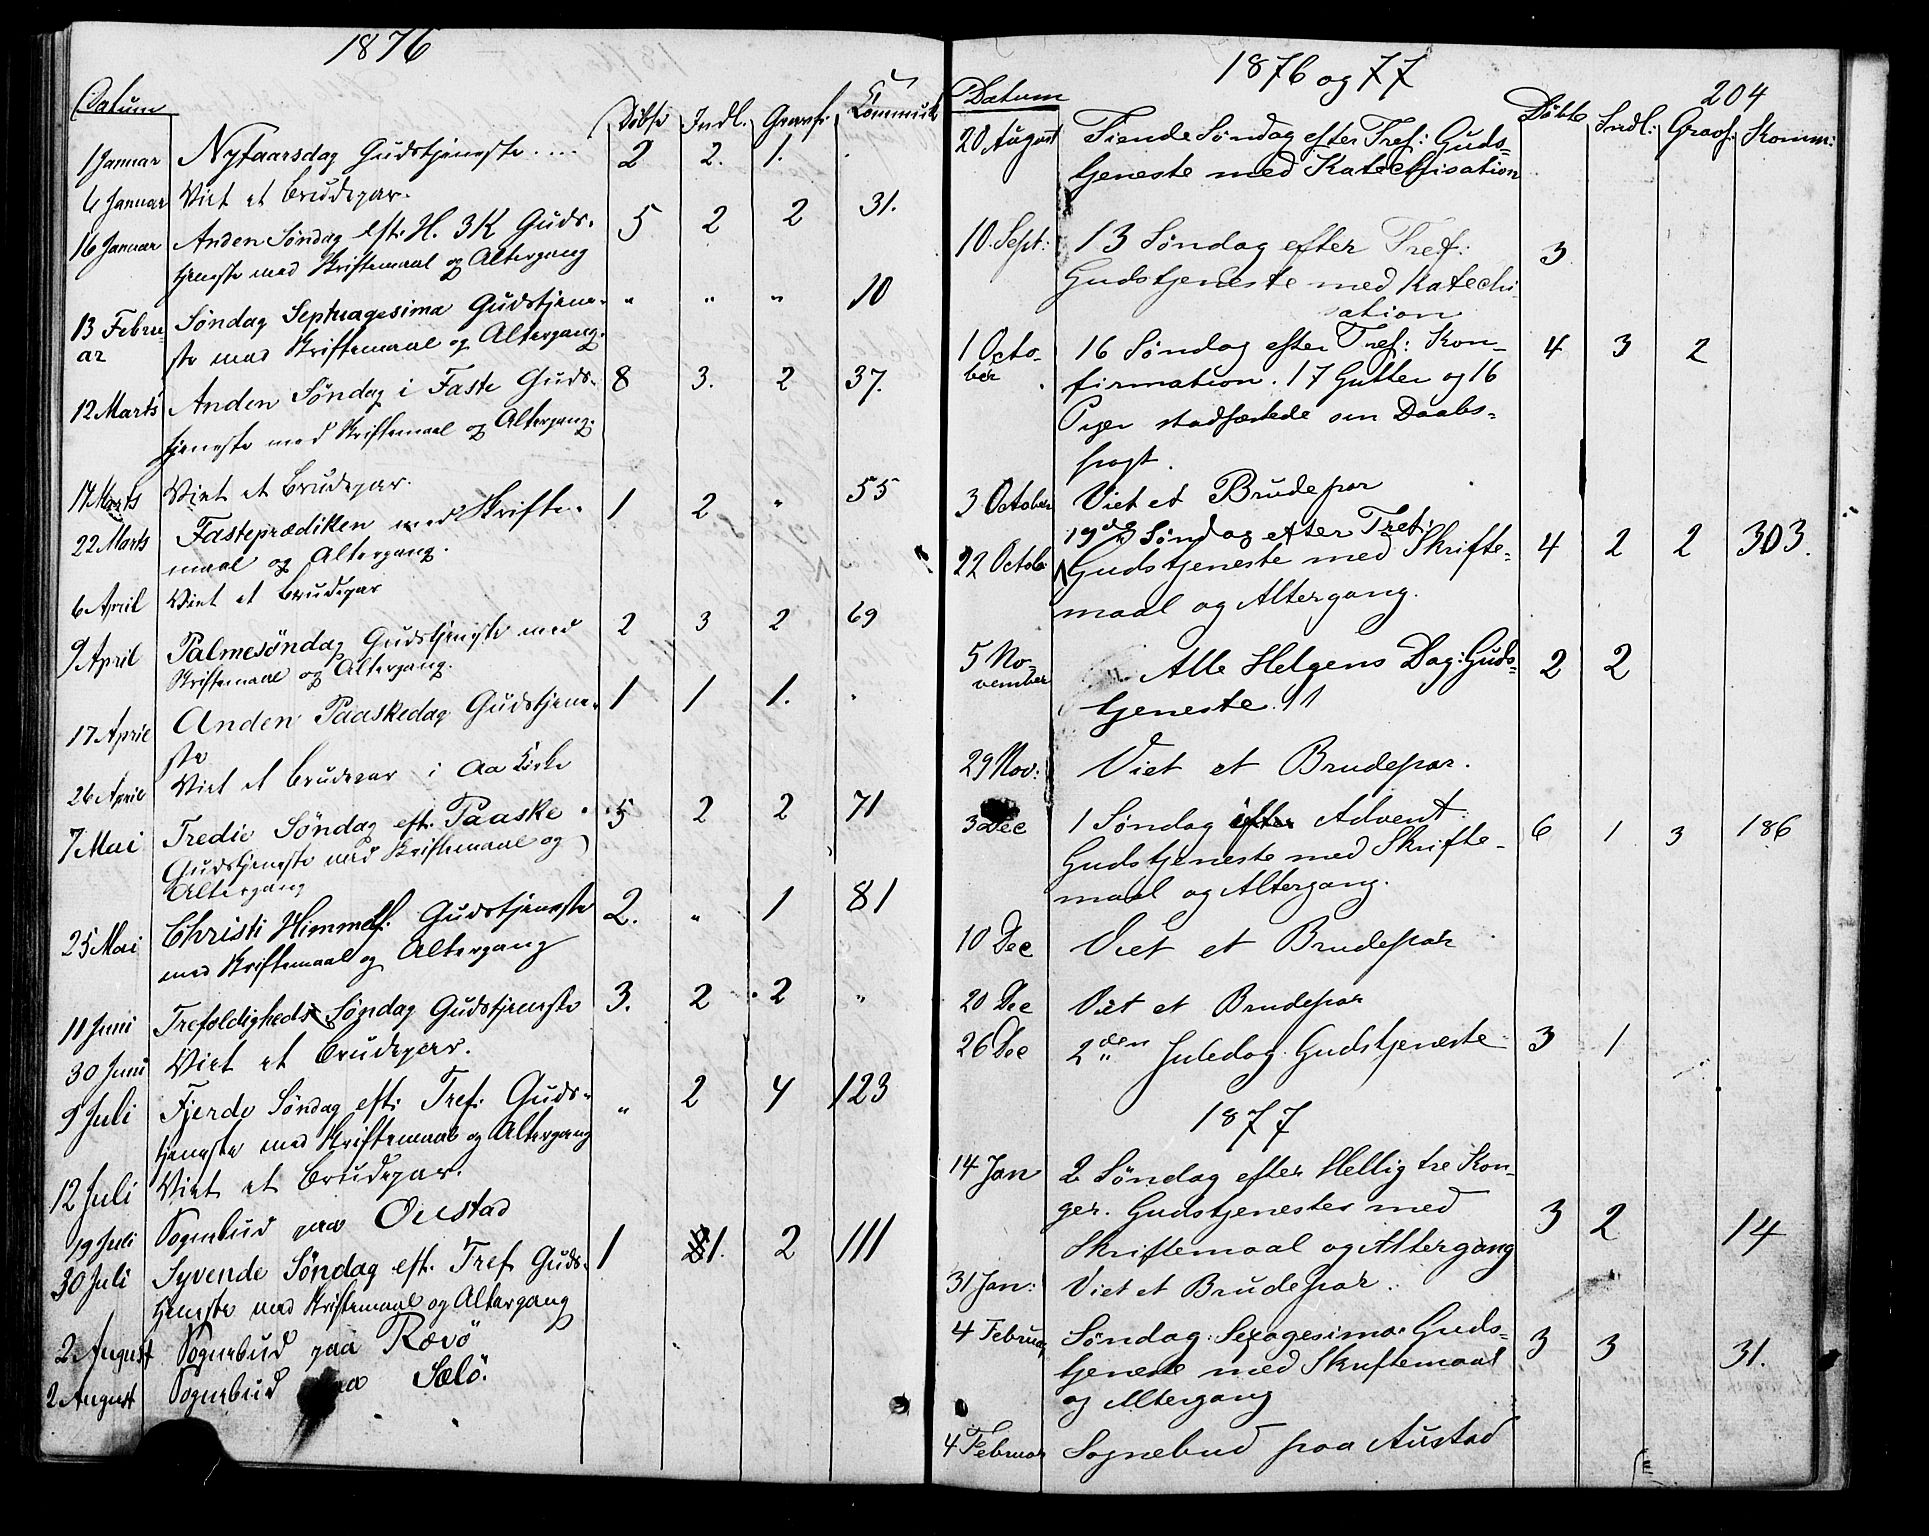 1876
Datum Döbte Indl. Gravf. Kommunik
1 Januar Nytaarsdag Gudstjeneste .... 2 2. 1. .
6 Januar Viet et Brudepar.
16 Januar Anden Søndag eft. H. 3K Guds- 5 2 2 31.
tjeneste med Skriftemaal og Altergang
13 Febru- Søndag Septuagesima Gudstjene- " " " 10
ar ste med Skriftemaal og Altergang.
12 Marts Anden Søndag i Faste Guds- 8 3. 2 37.
tjeneste med Skriftemaal og Altergang.
17 Marts Viet et Brudepar.
22 Marts Fasteprædiken med Skrifte- 1 2 " 55
maal og Altergang.
6 April Viet et Brudepar
9 April Palmesöndag Gudstjeneste med 2 3 2 69
Skriftemaal og Altergang.
17 April Anden Paaskedag Gudstjene- 1 1 1. .
ste
26 April Viet et Brudepar i Aa Kirke
7 Mai Tredie Søndag eft. Paaske 5 2 2 71
Gudstjeneste med Skriftemaal og
Altergang
25 Mai Christi Himmelf. Gudstjeneste 2. " 1 81
med Skriftemaal og Altergang
11 Juni Trefoldigheds Søndag Gudstjeneste 3. 2 2 "
30 Juni Viet et Brudepar.
9 Juli Fjerde Søndag eft. Tref. Guds- " 2 4 123
tjeneste med Skriftemaal og Altergang
12 Juli Viet et Brudepar.
19 Juli Sognebud paa Oustad
30 Juli Syvende Søndag eft. Tref. Guds- 1 1. 2 111
tjeneste med Skriftemaal og Altergang
2 August Sognebud paa Rævö
2 August Sognebud paa Selö.
1876 og 77
204
Datum Döbte Indl: Gravf: Komm:
20 August Tiende Søndag efter Tref: Guds-
tjeneste med Katechisation
10. Sept: 13 Søndag efter Tref: 3
Gudstjeneste med Katechi-
sation
1 Octo- 16 Søndag efter Tref: Kon- 4 3 2
ber firmation. 17 Gutter og 16
Piger stadfæstede sin Daabs-
pagt.
3 October Viet et Brudepar
19de Søndag efter Tref:
22 Octob: Gudstjeneste med Skrifte- 4 2 2 303.
maal og Altergang.
5 No- Alle Helgens Dag: Guds- 2 2
vember tjeneste.
29 Nov: Viet et Brudepar.
3 Dec 1 Søndag i Advent 6 1 3 186
Gudstjeneste med Skrifte-
maal og Altergang.
10 Dec Viet et Brudepar
20 Dec Viet et Brudepar
26 Dec 2den Juledag Gudstjeneste 3 1
1877
14 Jan 2 Søndag efter Hellig tre Kon-
ger. Gudstjenester med 3 2 14
Skriftemaal og Altergang
31 Jan: Viet et Brudepar.
4 Februar Søndag: Sexagesima: Guds- 3 3 31.
tjeneste med Skriftemaal
og Altergang
4 Februar Sognebud paa Austad